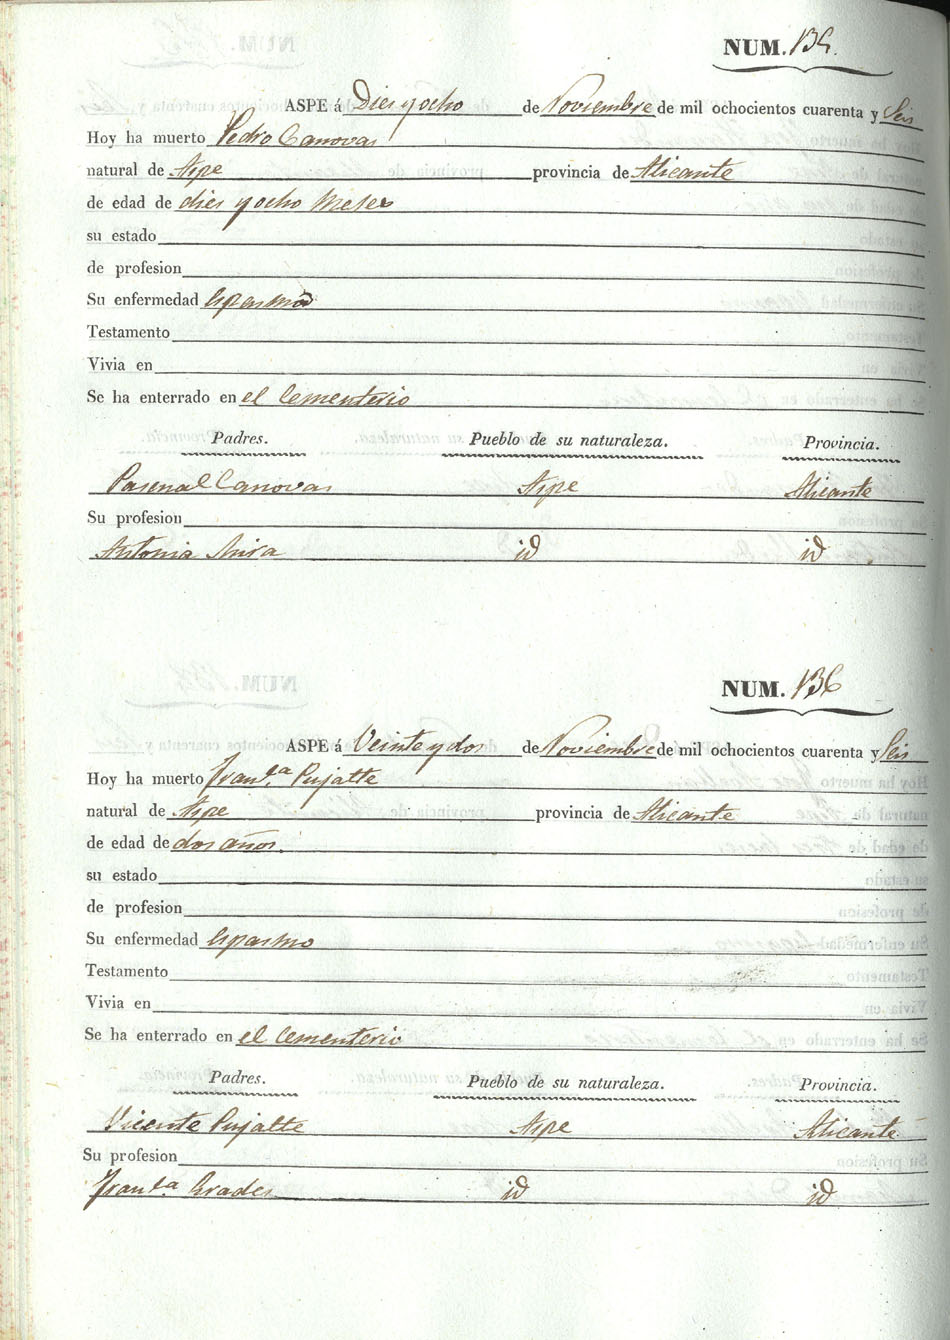 NUM. 135.
ASPE á Dies y ocho de Noviembre de mil ochocientos cuarenta y Seis
Hoy ha muerto Pedro Canovas
natural de Aspe provincia de Alicante
de edad de dies y ocho meses
su estado
de profesion
Su enfermedad Espasmo
Testamento
Vivia en
Se ha enterrado en el Cementerio
Padres. Pueblo de su naturaleza. Provincia.
Pascual Canovas Aspe Alicante
Su profesion
Antonia Mira id id
NUM. 136
ASPE á Veinte y dos de Noviembre de mil ochocientos cuarenta y Seis
Hoy ha muerto Fran.ca Pujalte
natural de Aspe provincia de Alicante
de edad de dos años.
su estado
de profesion
Su enfermedad Espasmo
Testamento
Vivia en
Se ha enterrado en el Cementerio
Padres. Pueblo de su naturaleza. Provincia.
Vicente Pujalte Aspe Alicante
Su profesion
Fran.ca id id